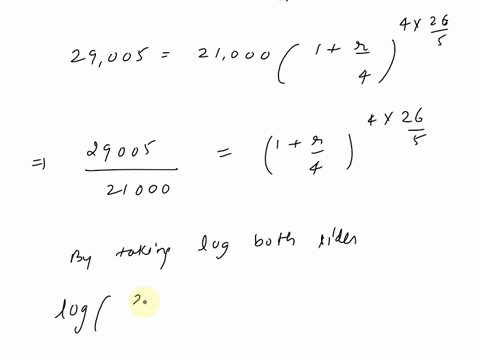 29,005 = 21,000 ( 1 + r/4 )^(4 × 26/5)
⇒ 29005/21000 = ( 1 + r/4 )^(4 × 26/5)
By taking log both sides
log (